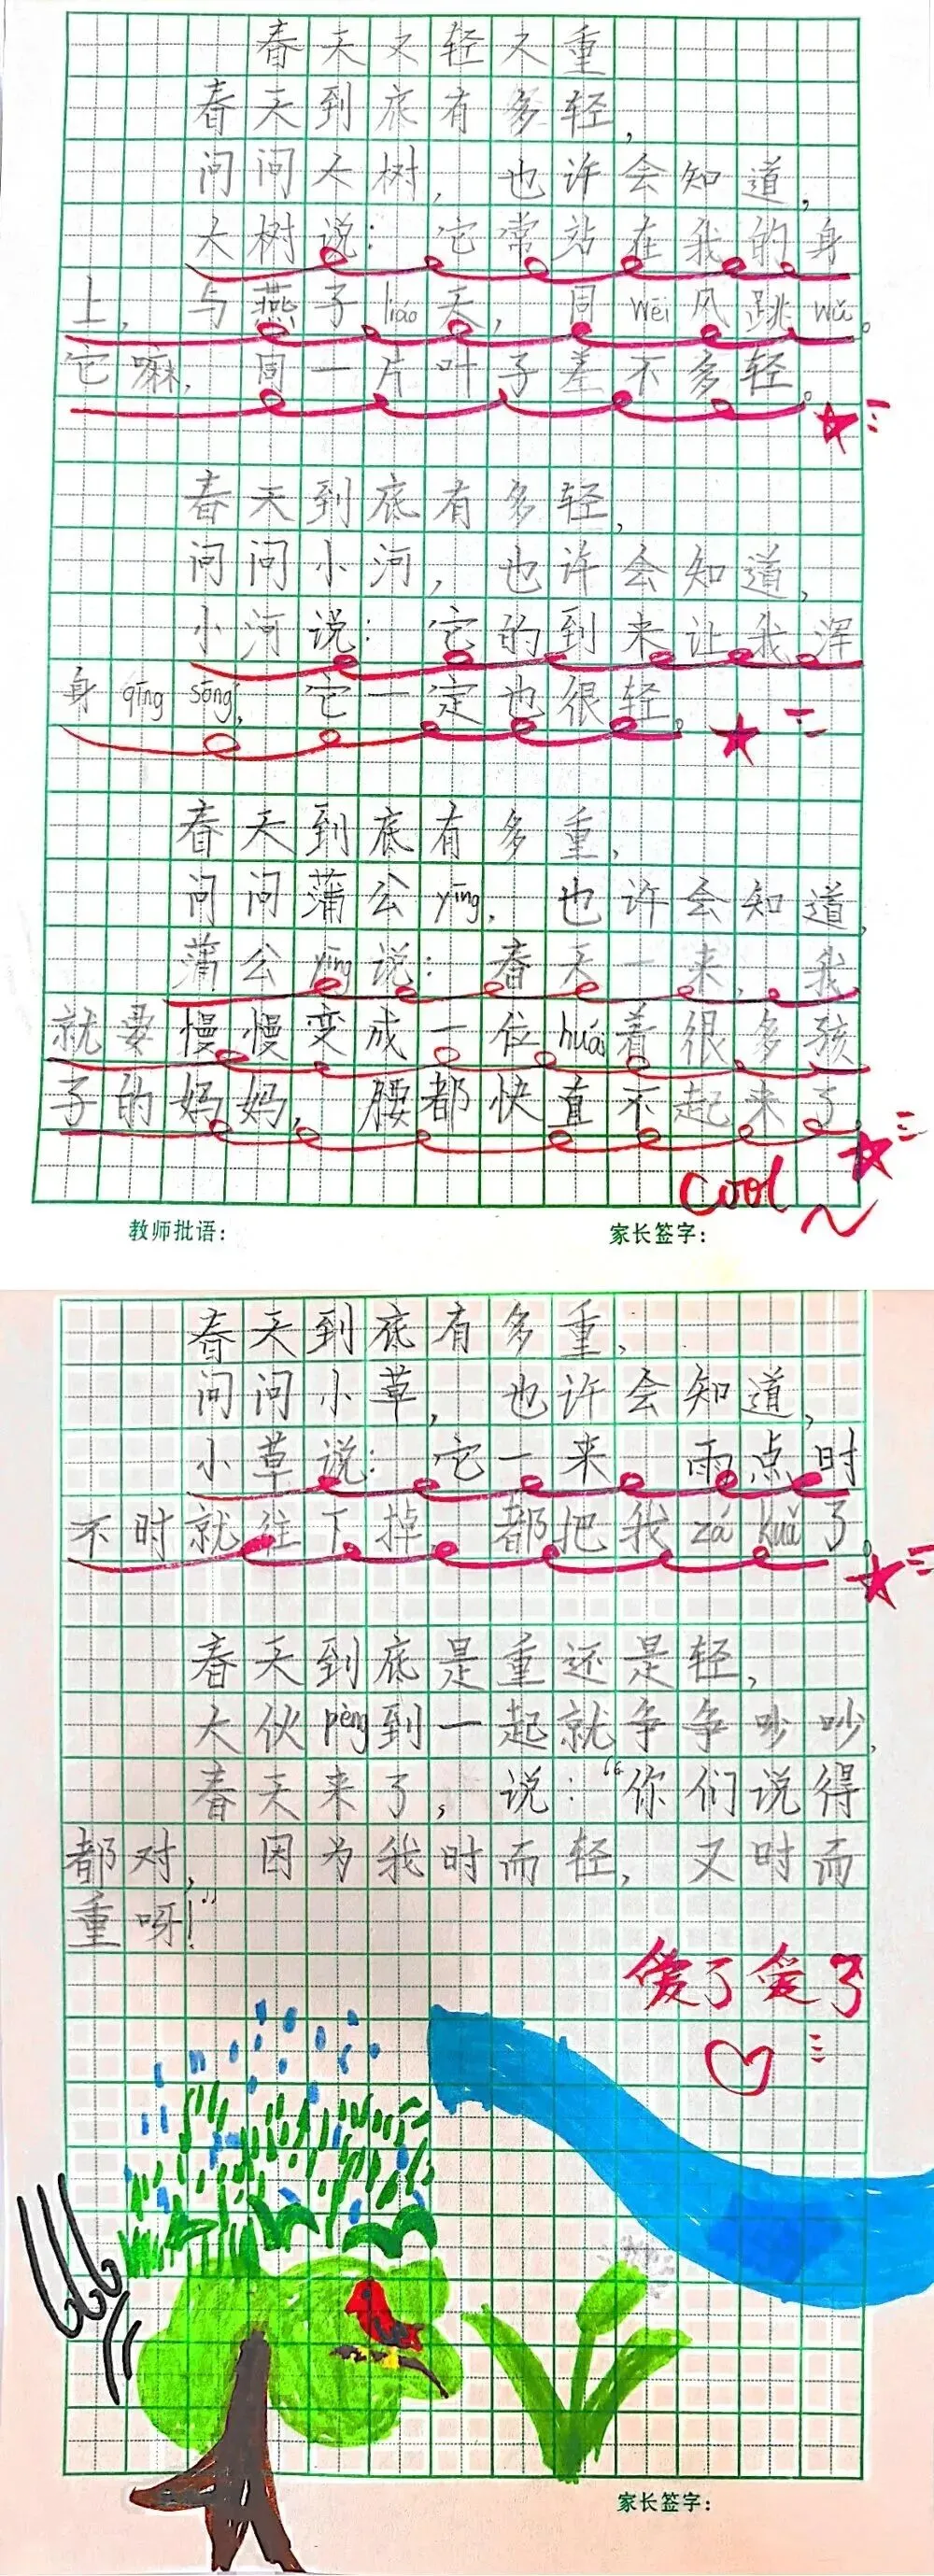 春天又轻又重
春天到底有多轻，
问问大树，也许会知道，
大树说：它常站在我的身
上，与燕子liáo天，同wēi风跳wǔ。
它嘛，同一片叶子差不多轻。
春天到底有多轻，
问问小河，也许会知道，
小河说：它的到来让我浑
身qīng sōng，它一定也很轻。
春天到底有多重，
问问蒲公yīng，也许会知道，
蒲公yīng说：春天一来，我
就要慢慢变成一位huái着很多孩
子的妈妈，腰都快直不起来了。
Cool~
教师批语：
家长签字：
春天到底有多重，
问问小草，也许会知道，
小草说：它一来，雨点时
不时就往下掉，都把我zá kuǎ了。
春天到底是重还是轻，
大伙pèng到一起就争争吵吵，
春天来了，说：“你们说得
都对，因为我时而轻，又时而
重呀！”
爱了爱了
家长签字：